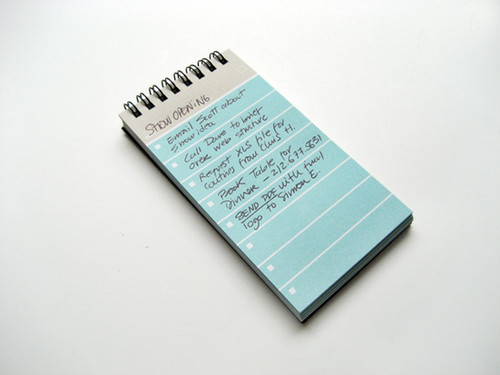 SHOW OPENING
Email Scott about
show idea
Call Dave to
over web structure
Request XLS file for
routing from Chris H.
Book Table for
Dinner – 212.677.3831
SEND PDF with full
logo to Simon E.